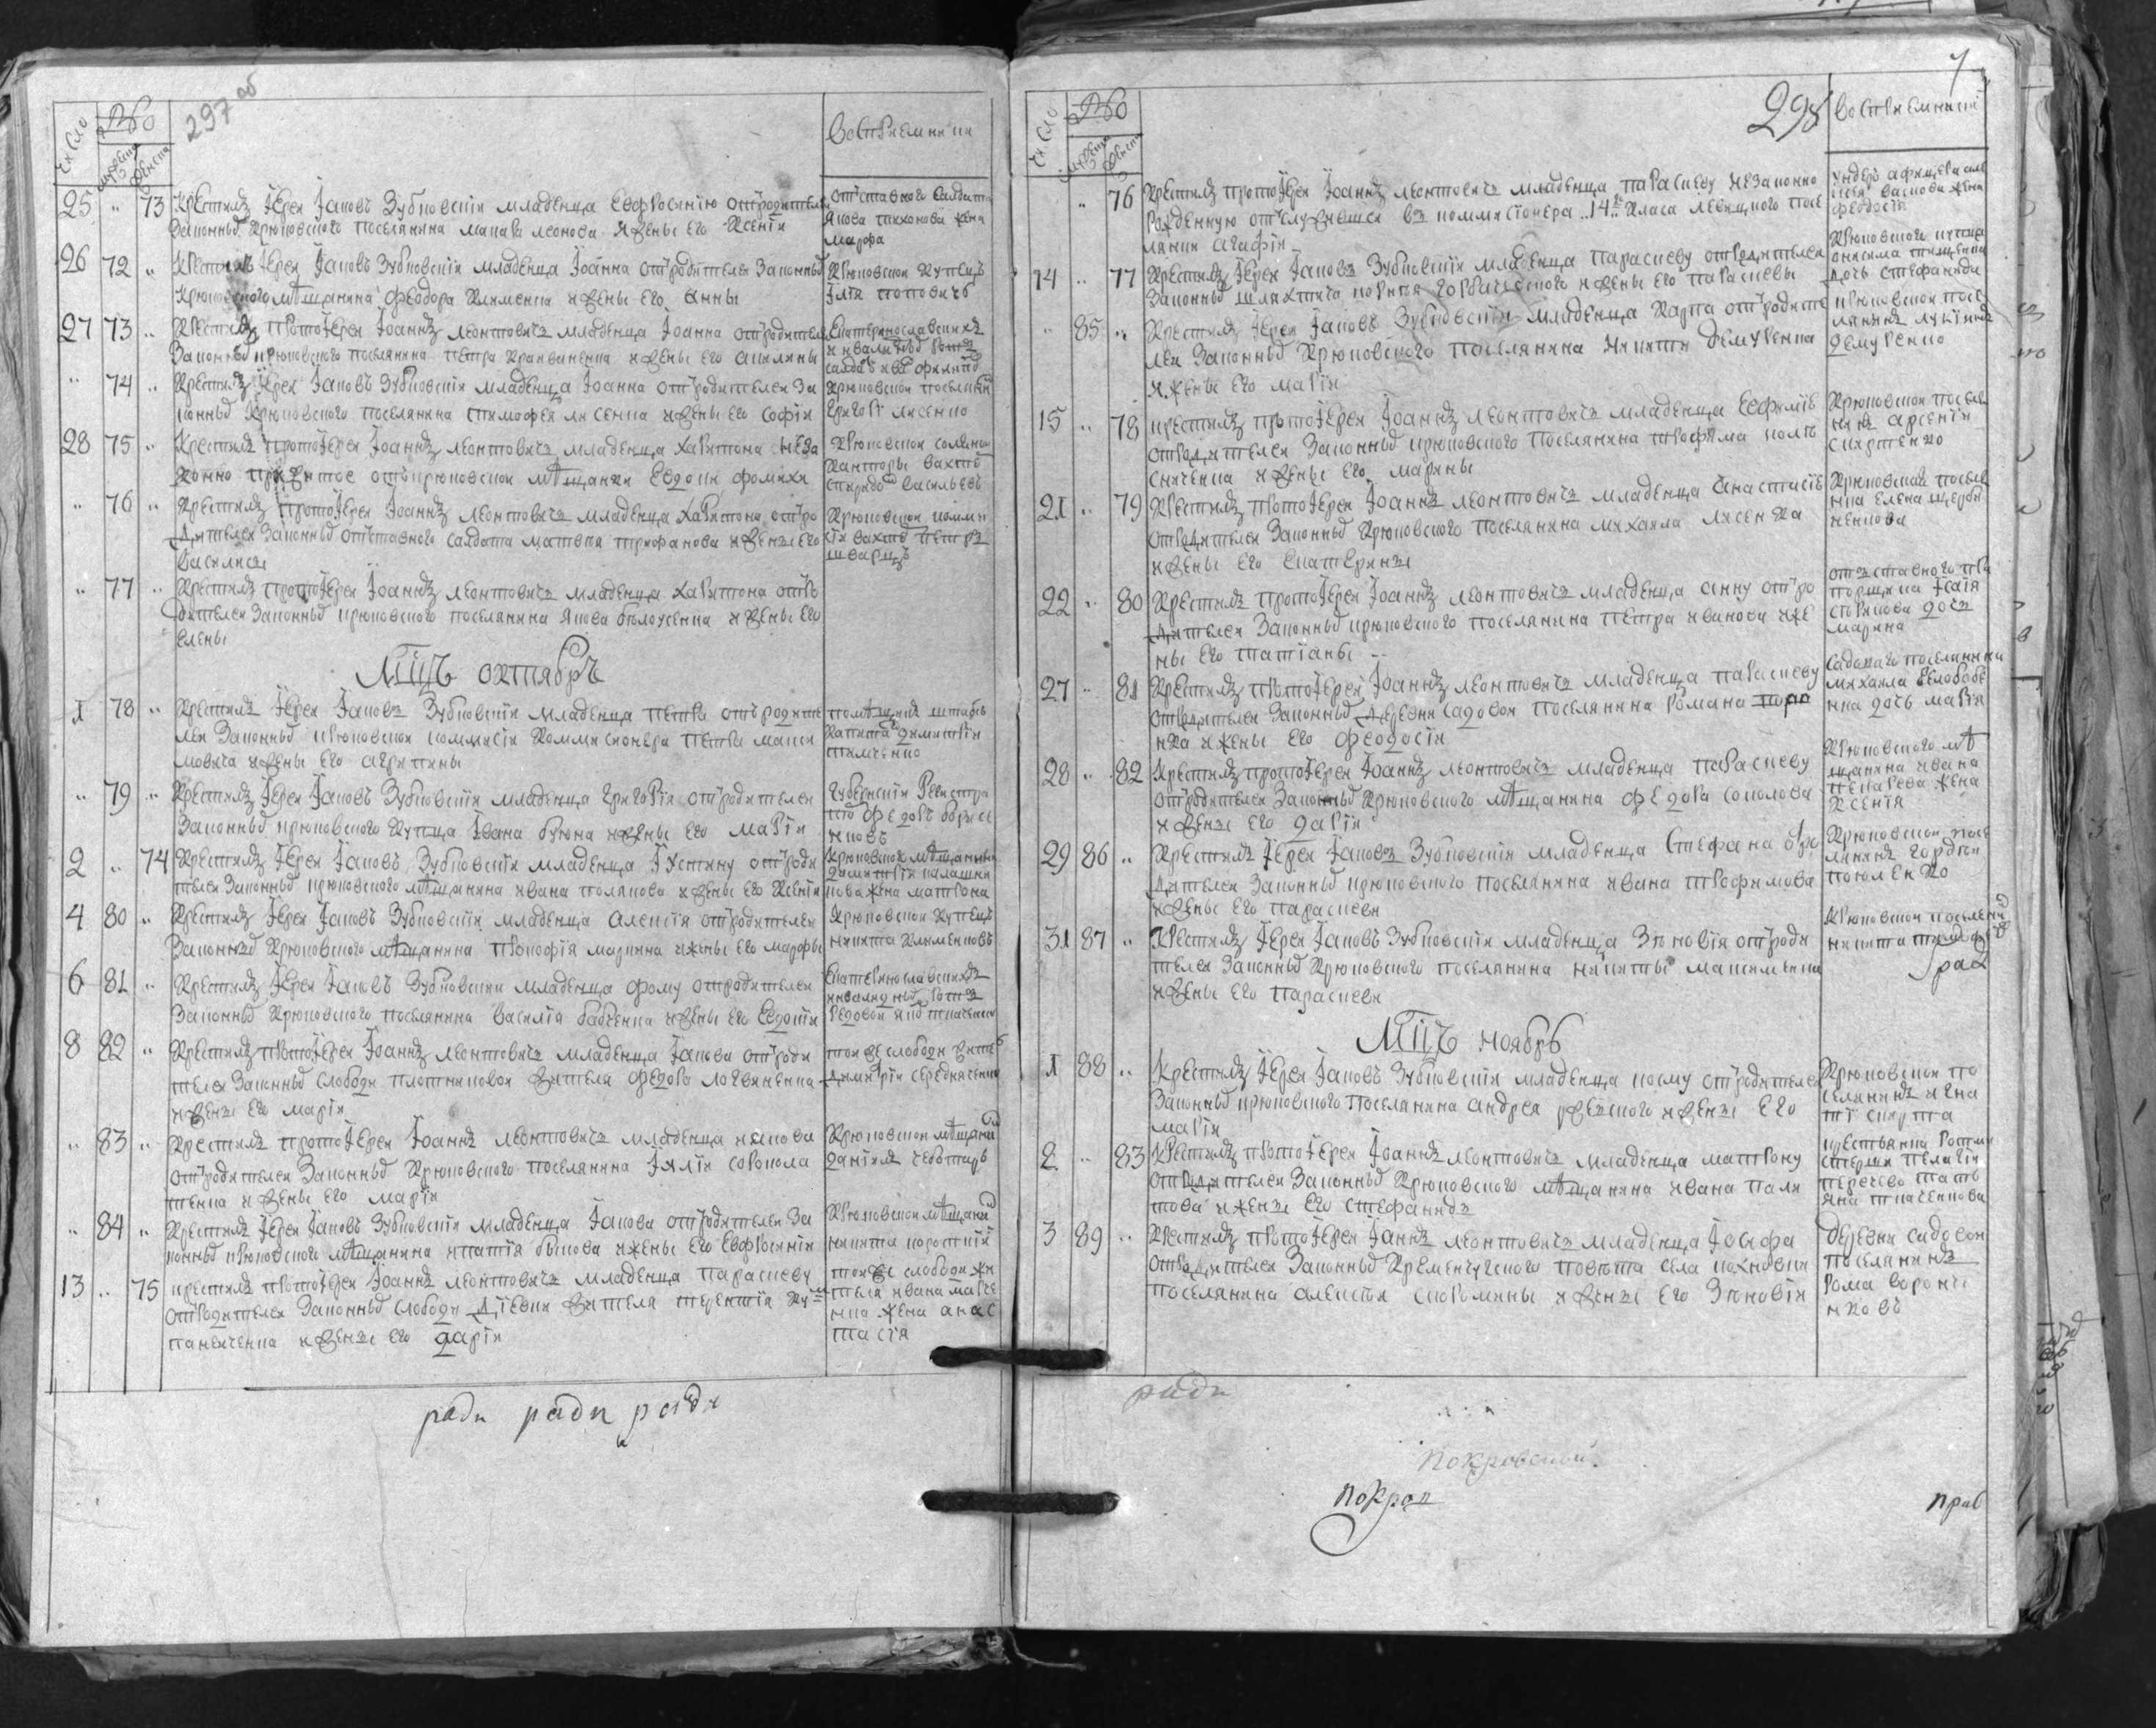 297 об
число
мужеска
женска
Воспрiемники
25 .. 73 Крестилъ Iерей Iаковъ Зубковскiй младенца Евфросинiю отъ родителей
законныхъ Крюковского поселянина Макара Леонова и жены его Ксенiи
отставного салдата
Якова Тихонова жена
Марфа
26 72 .. Крестилъ Iерей Iаковъ Зубковскiй младенца Iоанна отъ родителей законныхъ
Крюковского мѣщанина Феодора Клименка и жены его Анны
Крюковскои купецъ
Iлiя Поповичъ
27 73 .. Крестилъ протоIерей Iоаннъ Леонтовичъ младенца Iоанна отъ родителей
законныхъ Крюковского поселянина Петра и жены его Акилины
Екатеринославскихъ
инвалидныхъ ротъ
.. 74 .. Крестилъ Iерей Iаковъ Зубковскiй младенца Iоанна отъ родителей за
конныхъ Крюковского поселянина Тимофея Лисенка и жены его Софiи
Крюковскои поселянинъ
Григорi Лисенко
28 75 .. Крестилъ протоIерей Iоаннъ Леонтовичъ младенца Харитона неза
конно прижитое отъ Крюковскои мѣщанки Евдокiи Фомихи
Крюковскои соляной
канторы вахтеръ
Спиридо Васильевъ
.. 76 .. Крестилъ протоIерей Iоаннъ Леонтовичъ младенца Харитона отъ ро
дителей законныхъ отставного салдата Матвея Трифанова и жены его
Василисы
Крюковскои комми
сiи вахтеръ Петръ
Шварцъ
.. 77 .. Крестилъ протоIерей Iоаннъ Леонтовичъ младенца Харитона отъ ро
дителей законныхъ Крюковского поселянина Якова Бѣлоусенка и жены его
Елены
Мцъ октябръ
1 78 .. Крестилъ Iерей Iаковъ Зубковскiй младенца Петра отъ родите
лей законныхъ Крюковскои коммисiи коммисионера Петра Макси
мовича и жены его Агрипины
помѣщикъ штабсъ
капитанъ Димитрiй
Тимченко
.. 79 .. Крестилъ Iерей Iаковъ Зубковскiй младенца Григорiя отъ родителей
законныхъ Крюковского купца Iвана и жены его Марiи
Губернскiй регистра
торъ Федоръ Борисе
нковъ
2 .. 74 Крестилъ Iерей Iаковъ Зубковскiй младенца Iустину отъ роди
телей законныхъ Крюковского мѣщанина Ивана Полякова и жены его Ксенiи
Крюковского мѣщанина
Димитрiя Калашни
кова жена Матрона
4 80 .. Крестилъ Iерей Iаковъ Зубковскiй младенца Алексiя отъ родителей
законныхъ Крюковского мѣщанина Прокофiя Маркина и жены его Марфы
Крюковскои купецъ
Никита Клименковъ
6 81 .. Крестилъ Iерей Iаковъ Зубковскiй младенца Фому отъ родителей
законныхъ Крюковского поселянина Василiя Бабченка и жены его Евдокiи
Екатеринославскихъ
инвалидныхъ ротъ
рядовой Яковъ Ткаченко
8 82 .. Крестилъ протоIерей Iоаннъ Леонтовичъ младенца Iакова отъ роди
телей законныхъ слободы Плотниковой жителя Федора Логвиненка
и жены его Марiи
той же слободы житель
Димитрiи Середниченко
.. 83 .. Крестилъ протоIерей Iоаннъ Леонтовичъ младенца Иякова
отъ родителей законныхъ Крюковского поселянина Iлiи Соропола
тенка и жены его Марiи
Крюковскои мѣщанинъ
Данiилъ Чеботарь
.. 84 .. Крестилъ Iерей Iаковъ Зубковскiй младенца Iакова отъ родителей за
конныхъ Крюковского мѣщанина Игнатiя Быкова и жены его Евфросинiи
Крюковскои мѣщанинъ
Никита Короткiй
13 .. 75 Крестилъ протоIерей Iоаннъ Леонтовичъ младенца Параскеву
отъ родителей законныхъ слободы Дiевки жителя Терентiя
и жены его Дарiи
той же слободы жи
теля Ивана
жена Анас
тасiя
ради ради ради
7
298
число
мужеска
женска
Воспрiемники
.. 76 Крестилъ протоIерей Iоаннъ Леонтовичъ младенца Параскеву незаконно
рожденную отъ служившей въ коммисiонера 14го класа Левицкого посе
лянки Агафiи
ундеръ афицера
жена
Феодосiя
14 .. 77 Крестилъ Iерей Iаковъ Зубковскiй младенца Параскеву отъ родителей
законныхъ шляхтича Горбачевского и жены его Параскевы
Крюковского купца
Онисима Тищенка
дочь Стефанида
.. 85 .. Крестилъ Iерей Iаковъ Зубковскiй младенца Карпа отъ родите
лей законныхъ Крюковского поселянина Никиты Демуренка
и жены его Марiи
Крюковскои посе
лянинъ Лукiянъ
Демуренко
15 .. 78 Крестилъ протоIерей Iоаннъ Леонтовичъ младенца Евфимiю
отъ родителей законныхъ Крюковского поселянина Трофима Коле
сниченка и жены его Марины
Крюковскои поселя
нинъ Арсенiй
Скиртенко
21 .. 79 Крестилъ протоIерей Iоаннъ Леонтовичъ младенца Анастасiю
отъ родителей законныхъ Крюковского поселянина Михаила Лисенка
и жены его Екатерины
Крюковская поселя
нка Елена Щерби
ненкова
22 .. 80 Крестилъ протоIерей Iоаннъ Леонтовичъ младенца Анну отъ ро
дителей законныхъ Крюковского поселянина Петра Иванова и же
ны его Татiаны
отставного
Iсаiя
дочь
Марина
27 .. 81 Крестилъ протоIерей Iоаннъ Леонтовичъ младенца Параскеву
отъ родителей законныхъ деревни Садовой поселянина Романа
нка и жены его Феодосiи
Садового поселянина
Михаила Бѣлобабе
нка дочь Марiя
28 .. 82 Крестилъ протоIерей Iоаннъ Леонтовичъ младенца Параскеву
отъ родителей законныхъ Крюковского мѣщанина Федора Соколова
и жены его Дарiи
Крюковского мѣ
щанина Ивана
жена
Ксенiя
29 86 .. Крестилъ Iерей Iаковъ Зубковскiй младенца Стефана отъ ро
дителей законныхъ Крюковского поселянина Ивана Трофимова
и жены его Параскевы
Крюковскои посе
лянинъ Гордѣй
31 87 .. Крестилъ Iерей Iаковъ Зубковскiй младенца Зѣновiя отъ роди
телей законныхъ Крюковского поселянина Никиты Максименка
и жены его Параскевы
Крюковскои поселянинъ
Никита
Мцъ ноябрь
1 88 .. Крестилъ Iерей Iаковъ Зубковскiй младенца Косму отъ родителей
законныхъ Крюковского поселянина Андрея и жены его
Марiи
Крюковскои по
селянинъ Игна
тi Скирта
2 .. 83 Крестилъ протоIерей Iоаннъ Леонтовичъ младенца Матрону
отъ родителей законныхъ Крюковского мѣщанина Ивана
и жены его Стефаниды
крестьянка
Тать
яна Ткаченкова
3 89 .. Крестилъ протоIерей Iоаннъ Леонтовичъ младенца Iосифа
отъ родителей законныхъ Кременчугского повѣта села
поселянина Алексiя и жены его Зѣновiи
деревни Садовой
поселянинъ
Рома Вороне
нковъ
ради
Покровской.
покров
прав